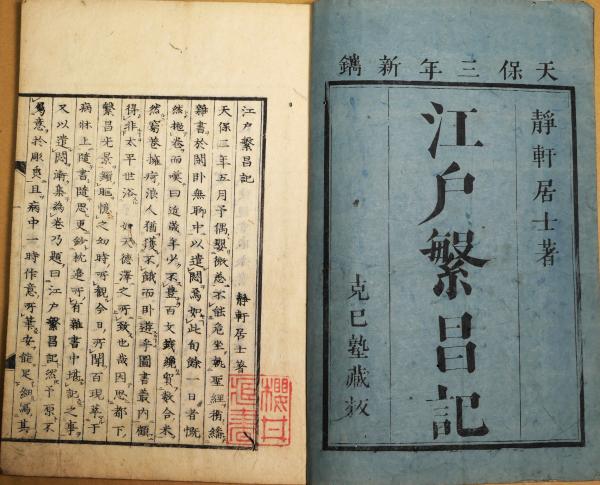 天保三年新鐫
靜軒居士著
江戸繁昌記
克己塾藏板
江戸繁昌記
靜軒居士著
天保二年五月予偶嬰微恙不能危坐執聖經稍繙
雜書於閑臥無聊中以遣悶焉如此旬餘一日者慨
然拋卷而嘆曰近歲年少不豊百文錢纔買數合米
然窮巷擁疴浪人猶獲不餓而臥遊乎圖書叢內顧
得非太平世俗 如天德澤之所致也哉因思都下
繁昌光景鎦眶憶之幼時所觀今日所聞百現萃于
病牀上隨書隨思更鈔枕邊所有雜書中堪記之事
又以遣悶漸集為卷乃題曰江戸繁昌記然予原不
屬意於彫虫且病中一時作意所筆安能足細寫其